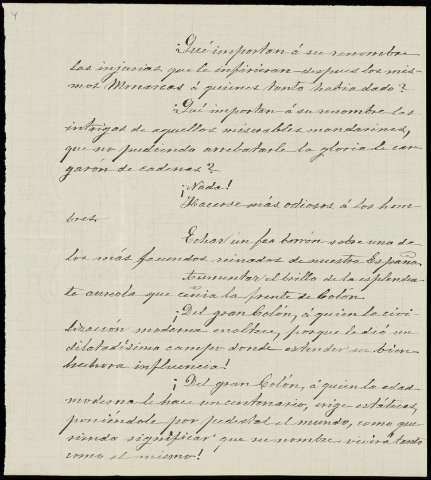 4
¡Qué importan á su renombre
las injurias que le infirieran despues los mis-
mos Monarcas á quienes tanto habia dado?
¡Qué importan á su renombre las
intrigas de aquellos miserables mandarines,
que no pudiendo arrebatarle la gloria le car-
garón de cadenas?
¡Nada!
Hacerse más odiosos á los hom-
bres.
Echar un feo borrón sobre una de
los más fecundos reinados de nuestra España.
Aumentar el brillo de la esplenden-
te aureola que ceñia la frente de Colón.
¡Del gran Colón, á quien la civi-
lización moderna enaltece, porque le dió un
dilatadísimo campo donde estender su bien-
hechora influencia!
¡Del gran Colón, á quien la edad
moderna le hace un centenario, erige estátuas,
poniéndole por pedestal el mundo, como que-
riendo significar que su nombre vivirá tanto
como el mismo!